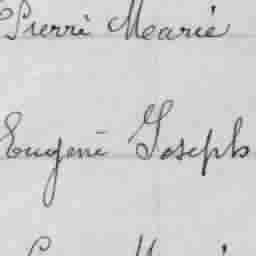 Pierre Marie
Eugène Joseph